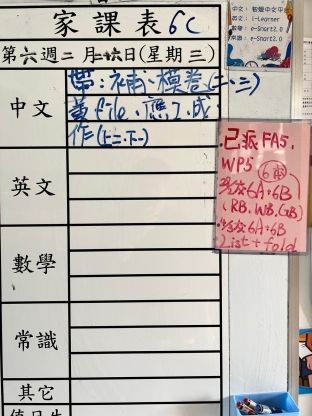 家課表 6C
第六週二月廿六日(星期三)
中文
帶:補、模卷(二、三)
黃file、應了、成、
作(上二、下一)
英文
數學
常識
其它
值日生
中文: 智愛中文平
英文: i-Learner
數學: e-Smart2.0
常識: e-Smart2.0
已派FA5,
WP5 (6張)
6A+6B
(RB, WB, GB)
6A+6B
List + fold